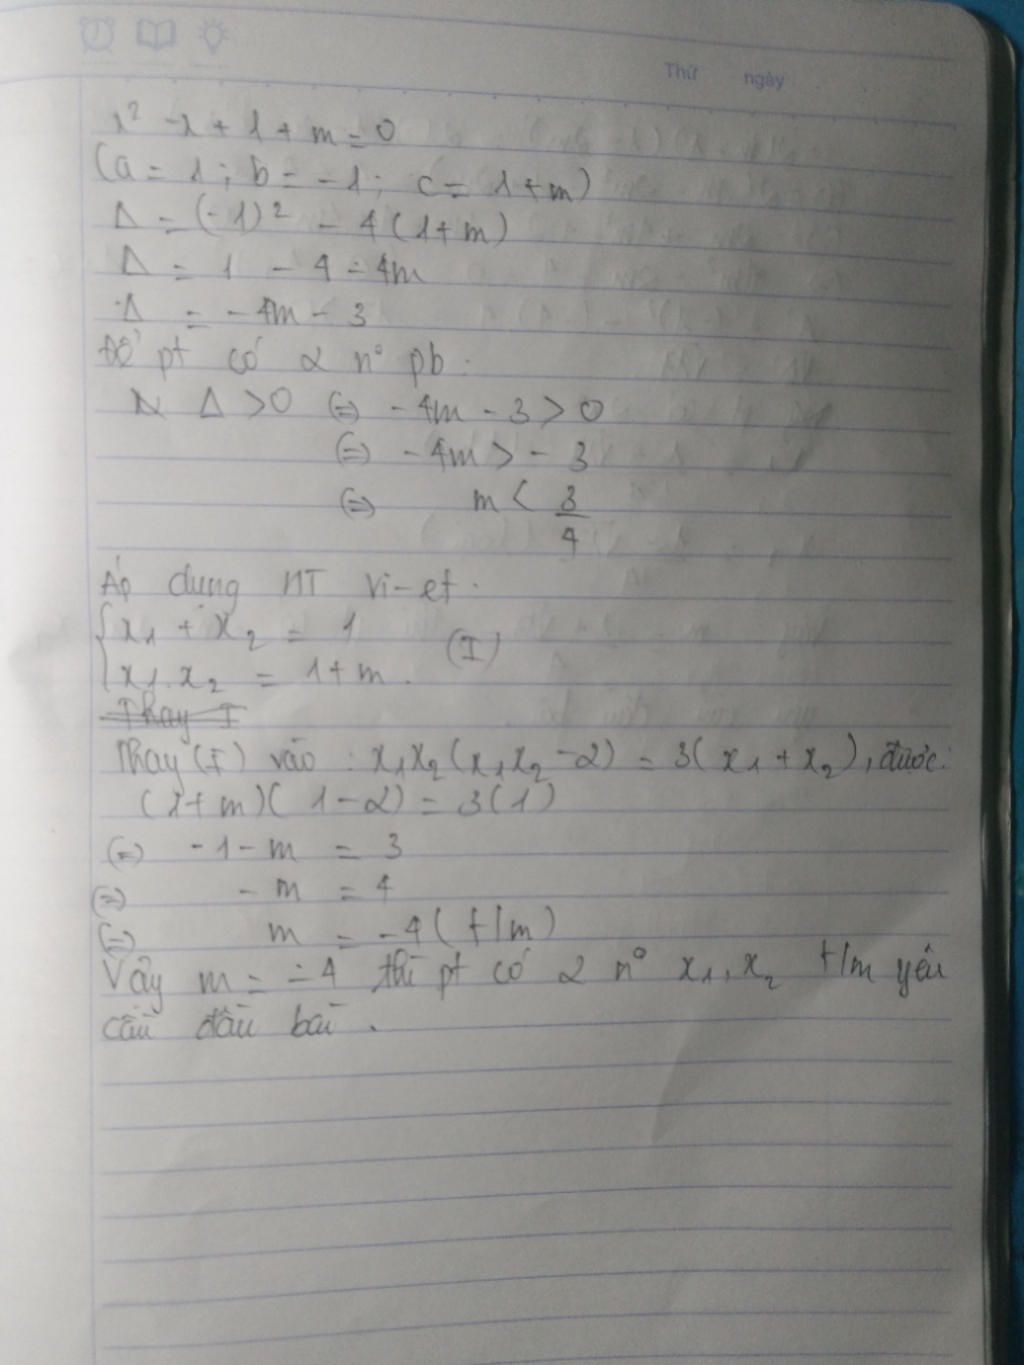 Thứ ngày
x² - x + 1 + m = 0
(a = 1 ; b = -1 ; c = 1 + m)
Δ = (-1)² - 4(1+m)
Δ = 1 - 4 - 4m
Δ = -4m - 3
Để pt có 2 n° pb :
Δ > 0 (=) -4m - 3 > 0
(=) -4m > - 3
(=) m < 3/4
Áp dụng HT Vi-et.
{x₁ + x₂ = 1
{x₁.x₂ = 1 + m. (I)
Thay I
Thay (I) vào : x₁x₂(x₁x₂ - 2) = 3(x₁ + x₂), được:
(1+m)(1-2) = 3(1)
(=) -1 - m = 3
(=) - m = 4
(=) m = -4 (t/m)
Vậy m = -4 thì pt có 2 n° x₁, x₂ t/m yêu
cầu đầu bài .